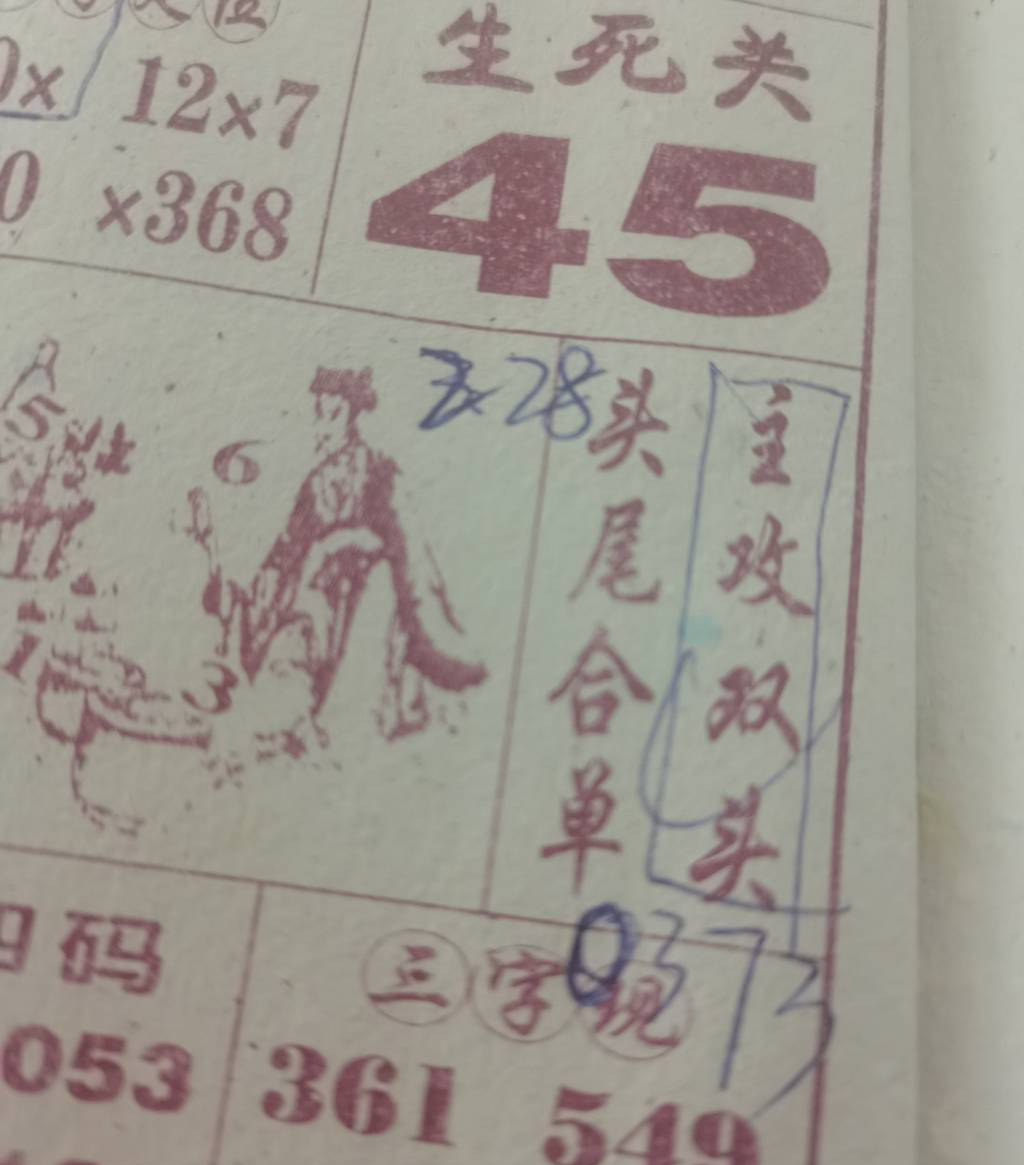 生死头
12×7
×368
45
28
5
6
1
3
头尾合单
主攻双头
码
三字现
0373
053
361 549